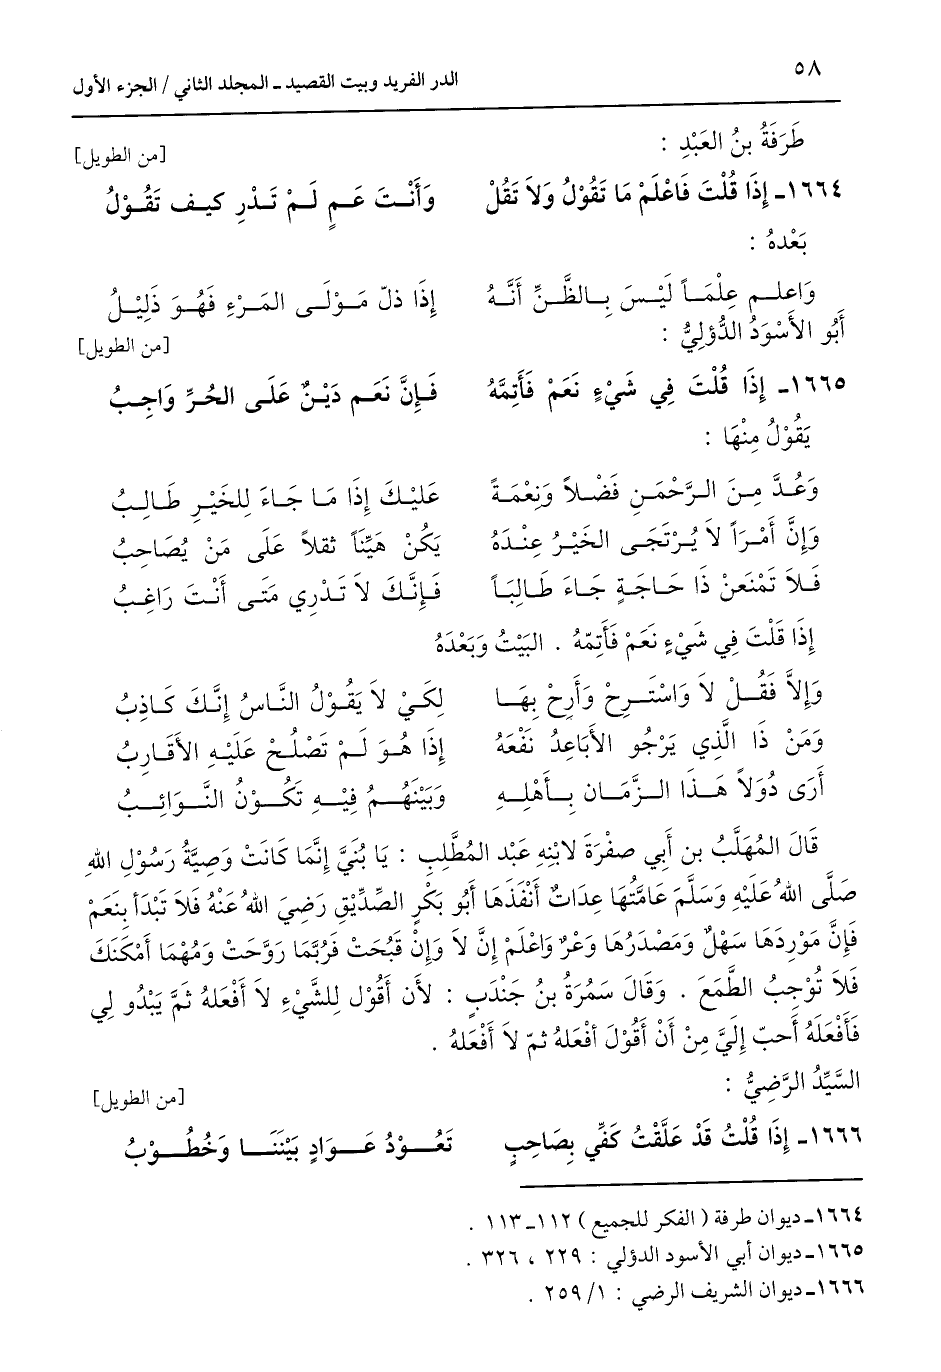 ٥٨
الدر الفريد وبيت القصيد ـ المجلد الثاني / الجزء الأول
طَرَفَةُ بنُ العَبْدِ :
[من الطويل]
١٦٦٤ـ إِذَا قُلْتَ فَاعْلَمْ مَا تَقُولُ وَلاَ تَقُل وَأَنْتَ عَمٍ لَمْ تَدْرِ كيف تَقُوْلُ
بَعْدهُ :
وَاعلم عِلْمَاً لَيْسَ بِالظَّنِّ أَنَّهُ إِذَا ذلّ مَوْلَى المَرْءِ فَهُوَ ذَلِيْلُ
أَبُو الأَسْوَدُ الدُّؤلِيُّ :
[من الطويل]
١٦٦٥ـ إِذَا قُلْتَ فِي شَيْءٍ نَعَمْ فَأَتِمَّهُ فَإِنَّ نَعَم دَيْنٌ عَلَى الحُرِّ وَاجِبُ
يَقُوْلُ مِنْهَا :
وَعُدَّ مِنَ الرَّحْمَنِ فَضْلاً وَنِعْمَةً عَلَيْكَ إِذَا مَا جَاءَ لِلخَيْرِ طَالِبُ
وَإِنَّ أمْرَاً لاَ يُرْتَجَى الخَيْرُ عِنْدَهُ يَكُنْ هَيِّنَاً ثقلاً عَلَى مَنْ يُصَاحِبُ
فَلاَ تَمْنَعَنْ ذَا حَاجَةٍ جَاءَ طَالِبَاً فَإِنَّكَ لاَ تَدْرِي مَتَى أَنْتَ رَاغِبُ
إِذَا قَلْتَ فِي شَيْءٍ نَعَمْ فَأَتِمّهُ . البَيْتُ وَبَعْدَهُ
وَإِلاَّ فَقُلْ لاَ وَاسْتَرِحْ وَأَرِحْ بِهَا لِكَيْ لاَ يَقُوْلُ النَّاسُ إِنَّكَ كَاذِبُ
وَمَنْ ذَا الَّذِي يَرْجُو الأَبَاعِدُ نَفْعَهُ إِذَا هُوَ لَمْ تَصْلُحْ عَلَيْهِ الأَقَارِبُ
أَرَى دُوَلاً هَذَا الزَّمَان بِأَهْلِهِ وَبَيْنَهُمُ فِيْهِ تَكُوْنُ النَّوَائِبُ
قَالَ المُهَلَّبُ بن أَبِي صفْرَةَ لابْنِهِ عَبْد المُطَّلِبِ : يَا بُنَيَّ إِنَّمَا كَانَتْ وَصِيَّةُ رَسُوْلِ اللهِ
صَلَّى اللهُ عَلَيْهِ وَسَلَّمَ عَامَّتُهَا عِدَاتٌ أَنْفَذَهَا أَبُو بَكْرٍ الصِّدِّيْقِ رَضِيَ اللهُ عَنْهُ فَلاَ تَبْدَأ بِنَعَمْ
فَإِنَّ مَوْرِدَهَا سَهْلٌ وَمَصْدَرُهَا وَعْرٌ وَاعْلَمْ إِنَّ لاَ وَإِنْ قَبُحَتْ فَرُبَّمَا رَوَّحَتْ وَمُهْمَا أَمْكَنَكَ
فَلاَ تُوْجِبُ الطَّمَعَ . وَقَالَ سَمُرَةُ بنُ جَنْدَبٍ : لأَن أَقُوْل لِلشَّيْءِ لاَ أَفْعَلهُ ثَمَّ يَبْدُو لِي
فَأَفْعَلَهُ أَحبّ إِلَيَّ مِنْ أَنْ أَقُوْلَ أفْعَلهُ ثمّ لاَ أَفْعَلهُ .
السَّيِّدُ الرَّضِيُّ :
[من الطويل]
١٦٦٦ـ إِذَا قُلْتُ قَدْ عَلَقْتُ كَفِّي بِصَاحِبٍ تَعُوْدُ عَوَادٍ بَيْنَنَا وَخُطُوْبُ
١٦٦٤ـ ديوان طرفة (الفكر للجميع) ١١٢ـ ١١٣ .
١٦٦٥ـ ديوان أبي الأسود الدؤلي : ٢٢٩ ، ٣٢٦ .
١٦٦٦ـ ديوان الشريف الرضي : ١/ ٢٥٩ .